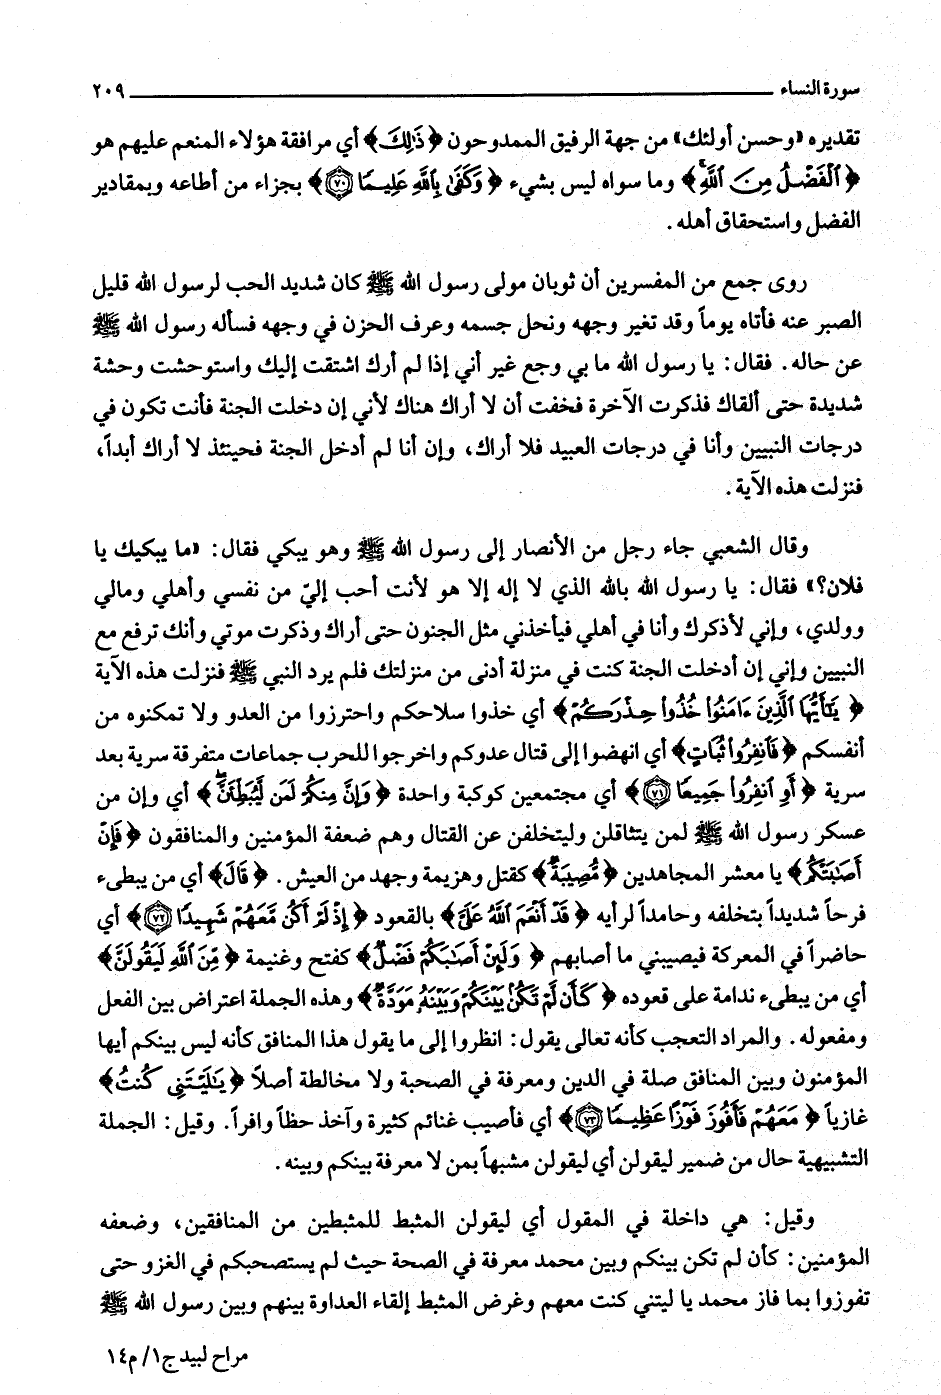 سورة النساء ٢٠٩
تقديره «وحسن أولئك» من جهة الرفيق الممدوحون ﴿ذَٰلِكَ﴾ أي مرافقة هؤلاء المنعم عليهم هو
﴿ٱلْفَضْلُ مِنَ ٱللَّهِ﴾ وما سواه ليس بشيء ﴿وَكَفَىٰ بِٱللَّهِ عَلِيمًا ٧٠﴾ بجزاء من أطاعه وبمقادير
الفضل واستحقاق أهله.
روى جمع من المفسرين أن ثوبان مولى رسول الله ﷺ كان شديد الحب لرسول الله قليل
الصبر عنه فأتاه يوماً وقد تغير وجهه ونحل جسمه وعرف الحزن في وجهه فسأله رسول الله ﷺ
عن حاله. فقال: يا رسول الله ما بي وجع غير أني إذا لم أرك اشتقت إليك واستوحشت وحشة
شديدة حتى ألقاك فذكرت الآخرة فخفت أن لا أراك هناك لأني إن دخلت الجنة فأنت تكون في
درجات النبيين وأنا في درجات العبيد فلا أراك، وإن أنا لم أدخل الجنة فحينئذ لا أراك أبداً،
فنزلت هذه الآية.
وقال الشعبي جاء رجل من الأنصار إلى رسول الله ﷺ وهو يبكي فقال: «ما يبكيك يا
فلان؟» فقال: يا رسول الله بالله الذي لا إله إلا هو لأنت أحب إليّ من نفسي وأهلي ومالي
وولدي، وإني لأذكرك وأنا في أهلي فيأخذني مثل الجنون حتى أراك وذكرت موتي وأنك ترفع مع
النبيين وإني إن أدخلت الجنة كنت في منزلة أدنى من منزلتك فلم يرد النبي ﷺ فنزلت هذه الآية
﴿يَٰٓأَيُّهَا ٱلَّذِينَ ءَامَنُوا۟ خُذُوا۟ حِذْرَكُمْ﴾ أي خذوا سلاحكم واحترزوا من العدو ولا تمكنوه من
أنفسكم ﴿فَٱنفِرُوا۟ ثُبَاتٍ﴾ أي انهضوا إلى قتال عدوكم واخرجوا للحرب جماعات متفرقة سرية بعد
سرية ﴿أَوِ ٱنفِرُوا۟ جَمِيعًا ٧١﴾ أي مجتمعين كوكبة واحدة ﴿وَإِنَّ مِنكُمْ لَمَن لَّيُبَطِّئَنَّ﴾ أي وإن من
عسكر رسول الله ﷺ لمن يتثاقلن وليتخلفن عن القتال وهم ضعفة المؤمنين والمنافقون ﴿فَإِنْ
أَصَٰبَتْكُم﴾ يا معشر المجاهدين ﴿مُّصِيبَةٌ﴾ كقتل وهزيمة وجهد من العيش. ﴿قَالَ﴾ أي من يبطىء
فرحاً شديداً بتخلفه وحامداً لرأيه ﴿قَدْ أَنْعَمَ ٱللَّهُ عَلَىَّ﴾ بالقعود ﴿إِذْ لَمْ أَكُن مَّعَهُمْ شَهِيدًا ٧٢﴾ أي
حاضراً في المعركة فيصيبني ما أصابهم ﴿وَلَئِنْ أَصَٰبَكُمْ فَضْلٌ﴾ كفتح وغنيمة ﴿مِّنَ ٱللَّهِ لَيَقُولَنَّ﴾
أي من يبطىء ندامة على قعوده ﴿كَأَن لَّمْ تَكُنۢ بَيْنَكُمْ وَبَيْنَهُۥ مَوَدَّةٌ﴾ وهذه الجملة اعتراض بين الفعل
ومفعوله. والمراد التعجب كأنه تعالى يقول: انظروا إلى ما يقول هذا المنافق كأنه ليس بينكم أيها
المؤمنون وبين المنافق صلة في الدين ومعرفة في الصحبة ولا مخالطة أصلاً ﴿يَٰلَيْتَنِى كُنتُ﴾
غازياً ﴿مَعَهُمْ فَأَفُوزَ فَوْزًا عَظِيمًا ٧٣﴾ أي فأصيب غنائم كثيرة وآخذ حظاً وافراً. وقيل: الجملة
التشبيهية حال من ضمير ليقولن أي ليقولن مشبهاً بمن لا معرفة بينكم وبينه.
وقيل: هي داخلة في المقول أي ليقولن المثبط للمثبطين من المنافقين، وضعفه
المؤمنين: كأن لم تكن بينكم وبين محمد معرفة في الصحة حيث لم يستصحبكم في الغزو حتى
تفوزوا بما فاز محمد يا ليتني كنت معهم وغرض المثبط إلقاء العداوة بينهم وبين رسول الله ﷺ
مراح لبيد ج١/ م١٤